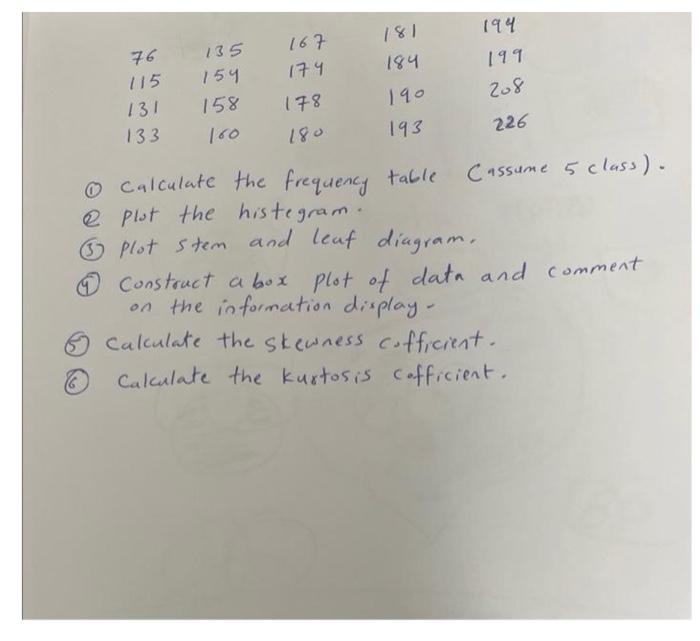 76 135 167 181 194
115 154 174 184 199
131 158 178 190 208
133 160 180 193 226
① Calculate the frequency table (assume 5 class).
② Plot the histegram.
③ Plot stem and leaf diagram.
④ Construct a box plot of data and comment
on the information display.
⑤ Calculate the skewness cofficient.
⑥ Calculate the kurtosis cofficient.